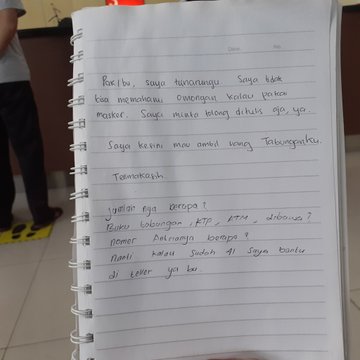 Date: No:
Pak/bu, saya tunarungu. Saya tidak
bisa memahami omongan kalau pakai
masker. Saya minta tolong ditulis aja, ya
Saya kesini mau ambil uang Tabunganku.
Terimakasih
jumlah nya berapa?
Buku tabungan, KTP, ATM, dibawa?
nomer Antriannya berapa?
nanti kalau sudah 41 saya bantu
di teller ya bu